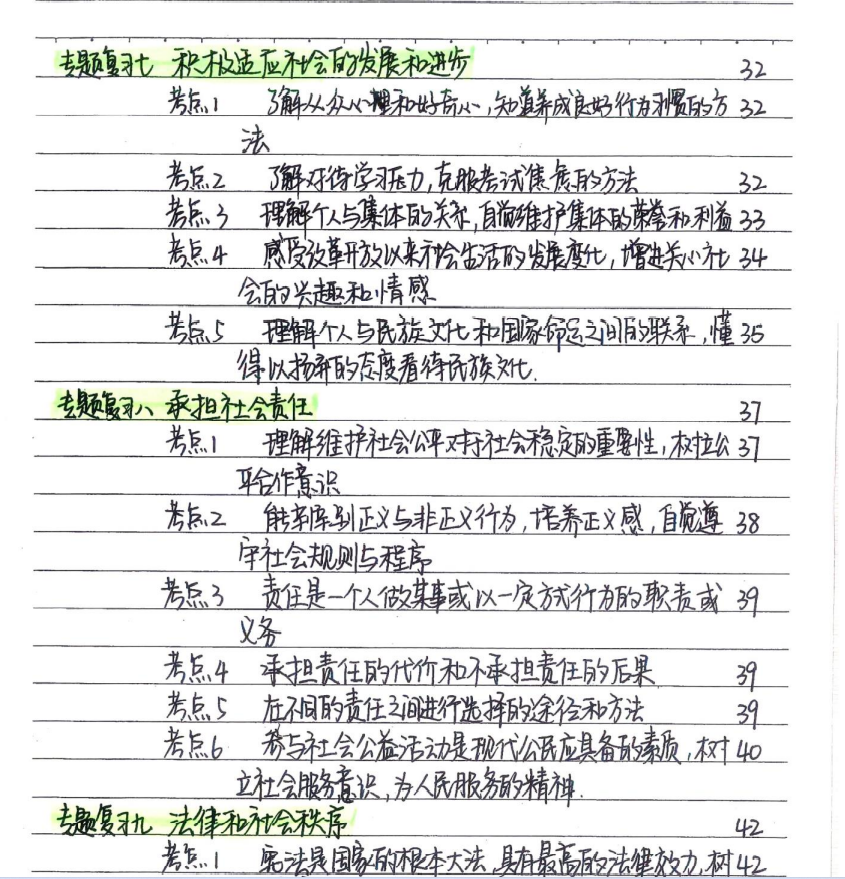 专题复习七 积极适应社会的发展和进步 32
考点1 了解从众心理和好奇心,知道养成良好行为习惯的方 32
法
考点2 了解对待学习压力,克服考试焦虑的方法 32
考点3 理解个人与集体的关系,自觉维护集体的荣誉和利益 33
考点4 感受改革开放以来社会生活的发展变化,增进关心社 34
会的兴趣和情感
考点5 理解个人与民族文化和国家命运之间的联系,懂 35
得以扬弃的态度看待民族文化.
专题复习八 承担社会责任 37
考点1 理解维护社会公平对于社会稳定的重要性,树立公 37
平合作意识
考点2 能辛库到正义与非正义行为,培养正义感,自觉遵 38
守社会规则与程序
考点3 责任是一个人做某事或以一定方式行为的职责或 39
义务
考点4 承担责任的代价和不承担责任的后果 39
考点5 在不同的责任之间进行选择的途径和方法 39
考点6 参与社会公益活动是现代公民应具备的素质,树 40
立社会服务意识,为人民服务的精神.
专题复习九 法律和社会秩序 42
考点1 宪法是国家的根本大法,具有最高的法律效力,树 42